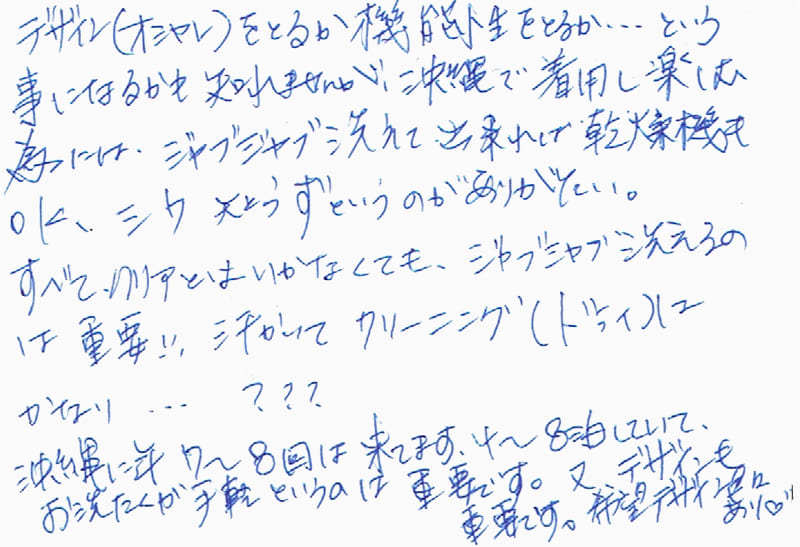 デザイン(オシャレ)をとるか機能性をとるか…という
事になるかも知れませんが、沖縄で着用し楽しむ
為には、ジャブジャブ洗えて出来れば乾燥機も
OK、シワ 大じょうずというのがありがたい。
すべて、クリアとはいかなくても、ジャブジャブ洗えるの
は重要!!、汗かいて クリーニング(ドライ)は
かなり … ???
沖縄に年 7〜8回は来てます、4〜8泊していて、
お洗たくが手軽というのは重要です。又、デザインも
重要です。希望デザイン
あり♡